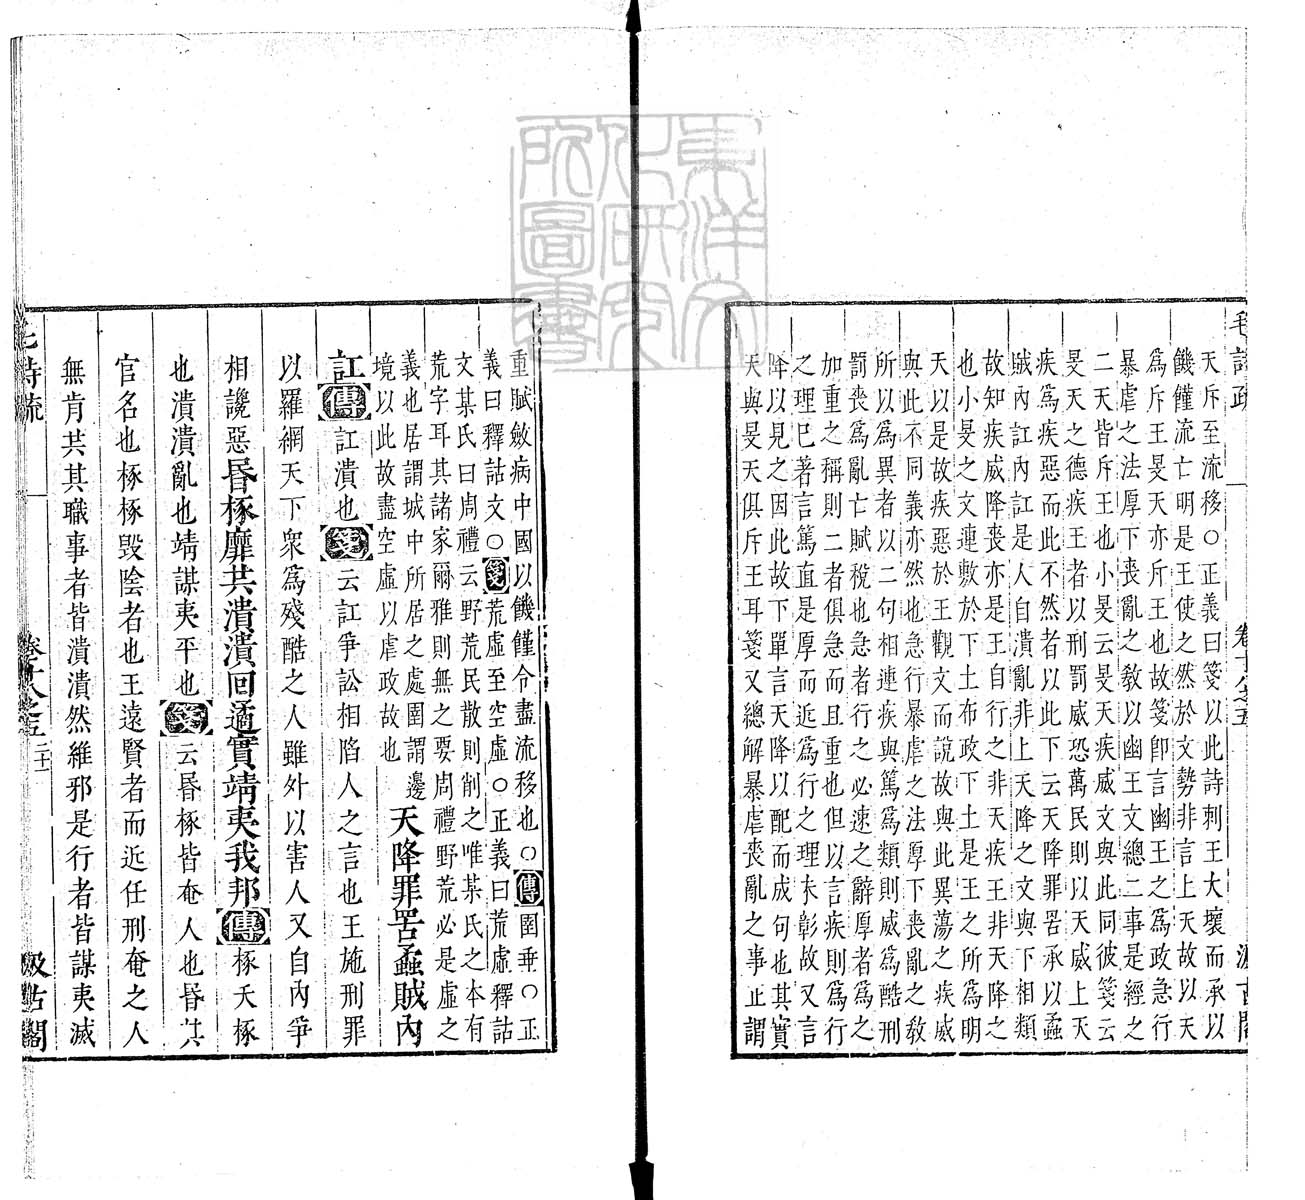 毛詩疏 卷十八之五 汲古閣
天斥至流移○正義曰箋以此詩刺王大壞而承以
饑饉流亡明是王使之然於文勢非言上天故以天
爲斥王旻天亦斥王也故箋即言幽王之爲政急行
暴虐之法厚下喪亂之教以幽王文總二事是經之
二天皆斥王也小旻云旻天疾威文與此同彼箋云
旻天之德疾王者以刑罰威恐萬民則以天威上天
疾爲疾惡而此不然者以此下云天降罪罟承以蟊
賊內訌內訌是人自潰亂非上天降之文與下相類
故知疾威降喪亦是王自行之非天疾王非天降之
也小旻之文連敷於下土布政下土是王之所爲明
天以是故疾惡於王觀文而說故與此異蕩之疾威
與此不同義亦然也急行暴虐之法厚下喪亂之教
所以爲異者以二句相連疾與篤爲類則威爲酷刑
罰喪爲亂亡賦稅也急者行之必速之辭厚者爲之
加重之稱則二者俱急而且重也但以言疾則爲行
之理已著言篤直是厚而近爲行之理未彰故又言
降以見之因此故下單言天降以配而成句也其實
天與旻天俱斥王耳箋又總解暴虐喪亂之事正謂
重賦斂病中國以饑饉令盡流移也○傳圉垂○正
義曰釋詁文○箋荒虛至空虛○正義曰荒虛釋詁
文某氏曰周禮云野荒民散則削之唯某氏之本有
荒字耳其諸家爾雅則無之要周禮野荒必是虛之
義也居謂城中所居之處圉謂邊
境以此故盡空虛以虐政故也
天降罪罟蟊賊內
訌傳訌潰也箋云訌爭訟相陷人之言也王施刑罪
以羅網天下衆爲殘酷之人雖外以害人又自內爭
相讒惡昬椓靡共潰潰回遹實靖夷我邦傳椓夭椓
也潰潰亂也靖謀夷平也箋云昬椓皆奄人也昬其
官名也椓椓毀陰者也王遠賢者而近任刑奄之人
無肯共其職事者皆潰潰然維邪是行者皆謀夷滅
毛詩疏 卷十八之五 二十一 汲古閣